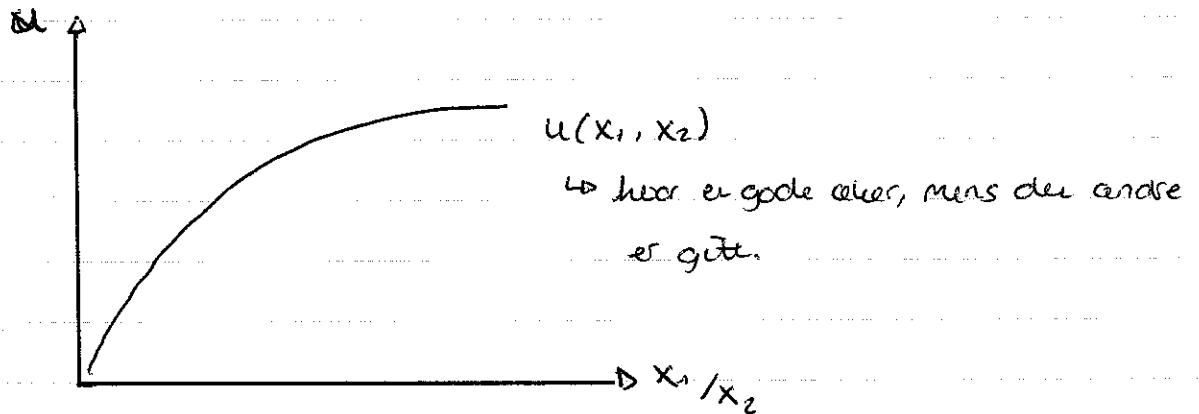 u
u(x₁, x₂)
↳ hvor en gode øker, mens den andre
er gitt.
x₁/x₂